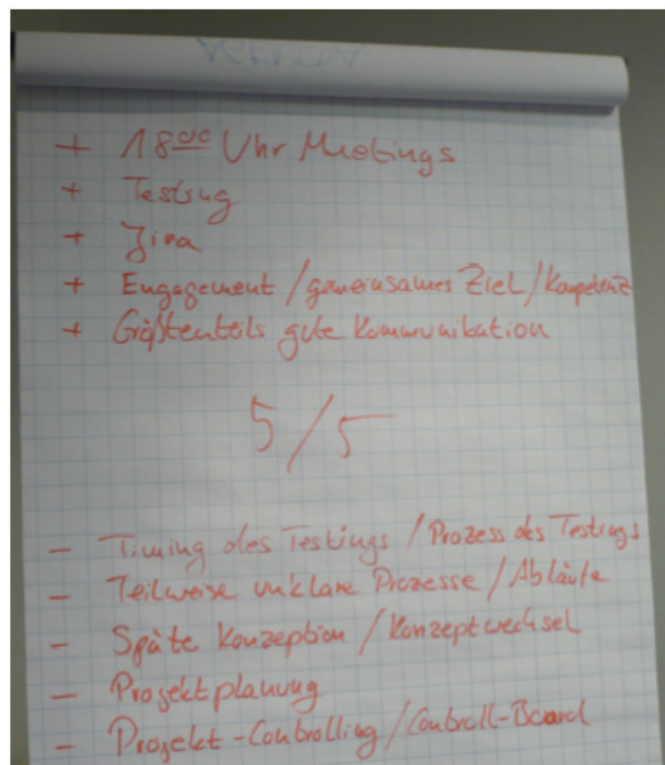 + 18⁰⁰ Uhr Meetings
+ Testing
+ Jira
+ Engagement / gemeinsames Ziel / Kompetenz
+ Größtenteils gute Kommunikation
5/5
- Timing des Testings / Prozess des Testings
- Teilweise unklare Prozesse / Abläufe
- Späte Konzeption / Konzeptwechsel
- Projektplanung
- Projekt-Controlling / Controll-Board